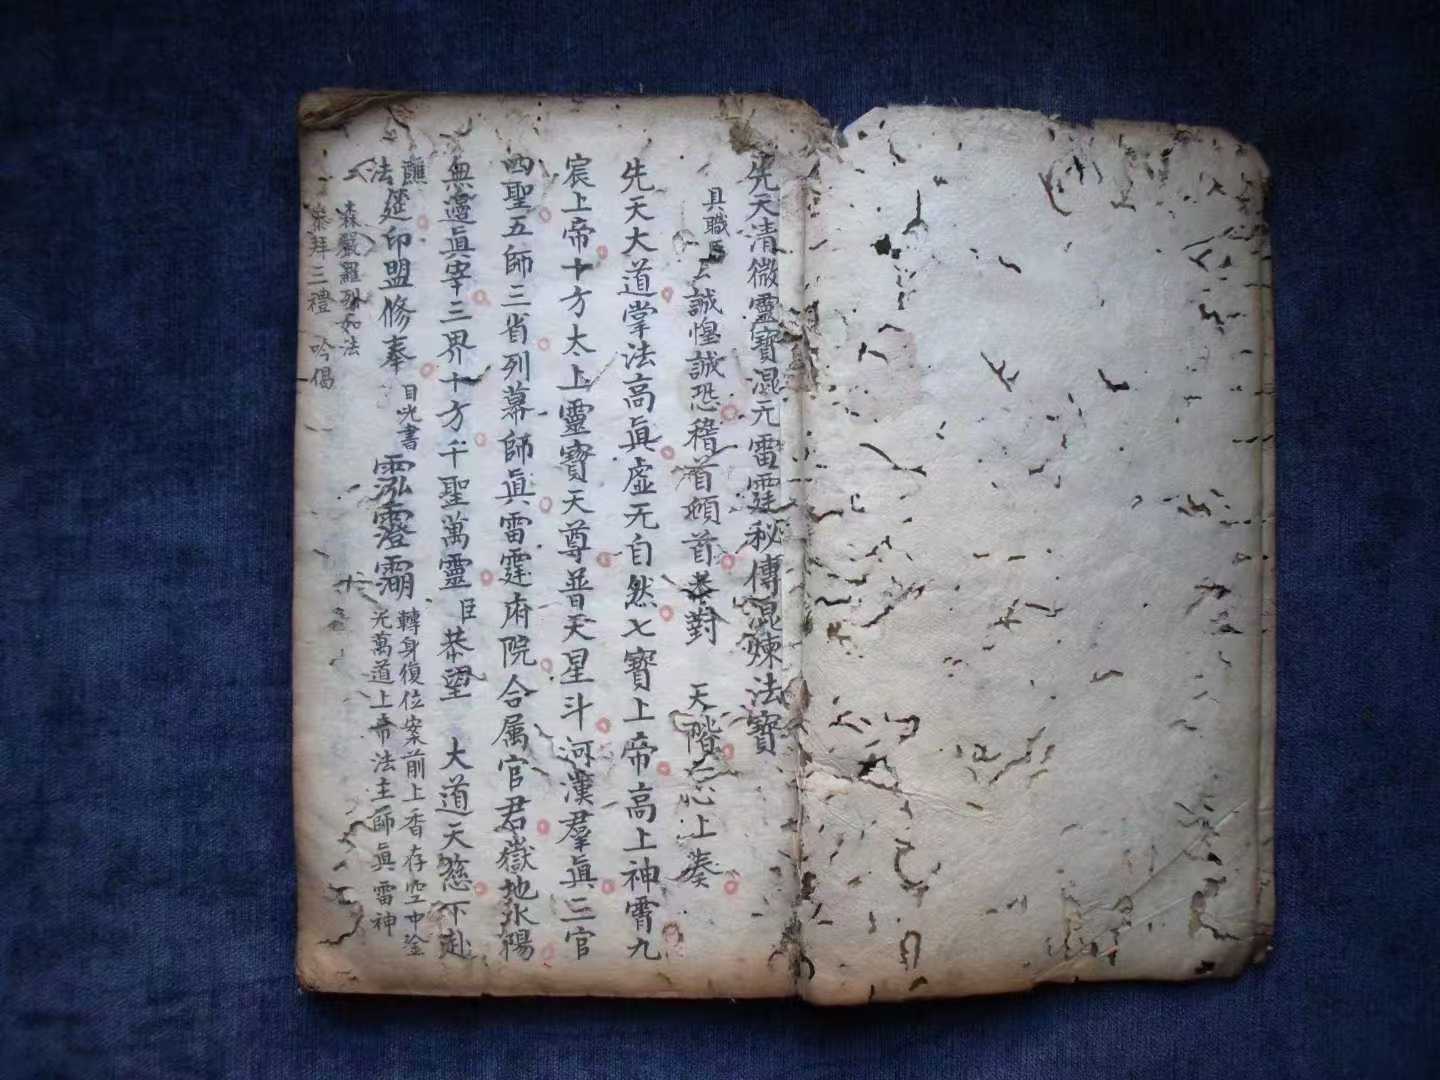 先天清微靈寳混元雷霆秘傳混煉法寳
具職臣
誠惶誠恐稽首頓首恭對 天階 心上奏
先天大道掌法高眞虛无自然七寳上帝高上神霄九
宸上帝十方太上靈寳天尊普天星斗河漢羣眞三官
四聖五師三省列幕師眞雷霆府院合属官君嶽地水陽
無邉眞宰三界十方千聖萬靈 臣 恭望 大道天慈下赴
醮
法筵印盟修奉 目光書
轉身復位案前上香存空中金
光萬道上帝法主師眞雷神
森嚴羅列如法
恭拜三禮 吟偈